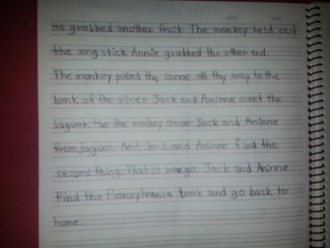 He grabbed another fruit. The monkey held out
the long stick Annie grabbed the other end.
The monkey pulled the canoe all thy way to the
bank of the river Jack and Aninne meet the
jaguar. the the monkey save Jack and Aninne
from jaguar. And Jack and Aninne find the
second thing. That is mango. Jack and Aninne
find the Pennsylvania book and go back to
home.